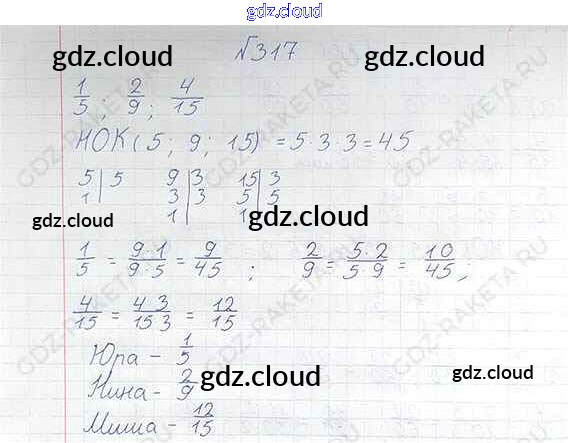 gdz.cloud
№317
gdz.cloud gdz.cloud
1/5; 2/9; 4/15
НОК(5; 9; 15) = 5·3·3 = 45
5|5 9|3 15|3
1| 3|3 5|5
1| 1|
gdz.cloud gdz.cloud
1/5 = 9·1/9·5 = 9/45; 2/9 = 5·2/5·9 = 10/45;
4/15 = 4 3/15 3 = 12/15
Юра - 1/5
Нина - 2/9
gdz.cloud gdz.cloud
Миша - 12/15
GDZ-RAKETA.RU